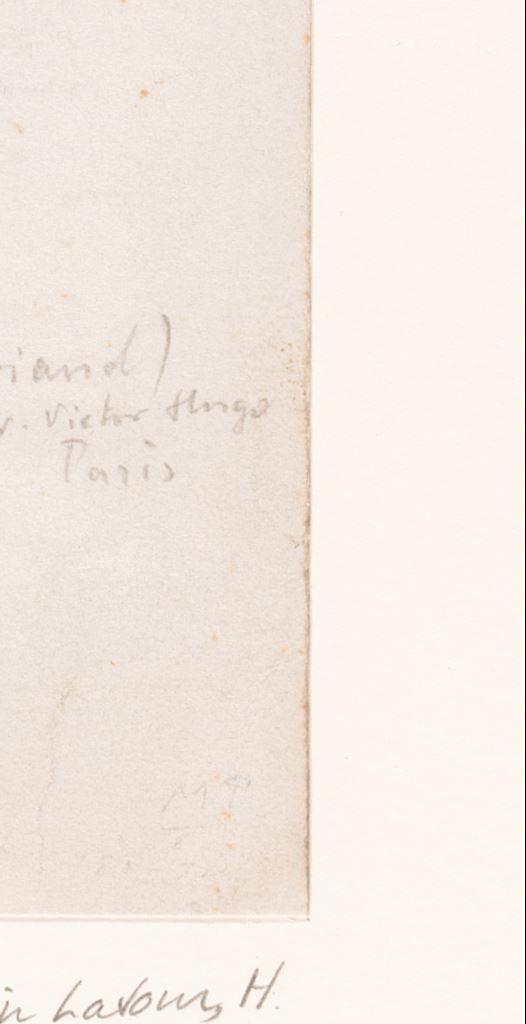 iand)
v. Victor Hugo
Paris
in Latour, H.